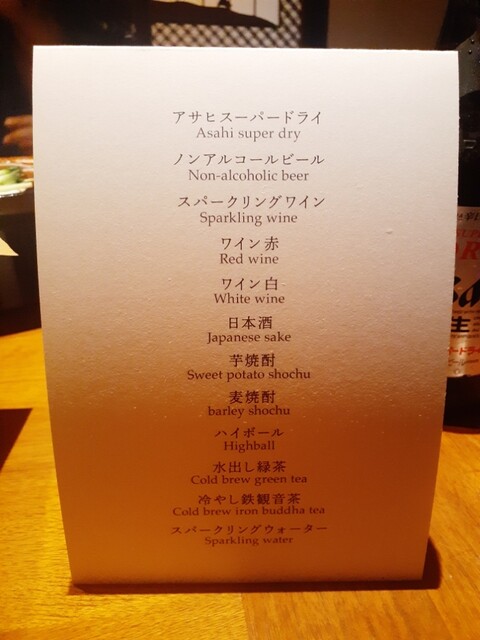 アサヒスーパードライ
Asahi super dry
ノンアルコールビール
Non-alcoholic beer
スパークリングワイン
Sparkling wine
ワイン赤
Red wine
ワイン白
White wine
日本酒
Japanese sake
芋焼酎
Sweet potato shochu
麦焼酎
barley shochu
ハイボール
Highball
水出し緑茶
Cold brew green tea
冷やし鉄観音茶
Cold brew iron buddha tea
スパークリングウォーター
Sparkling water
生